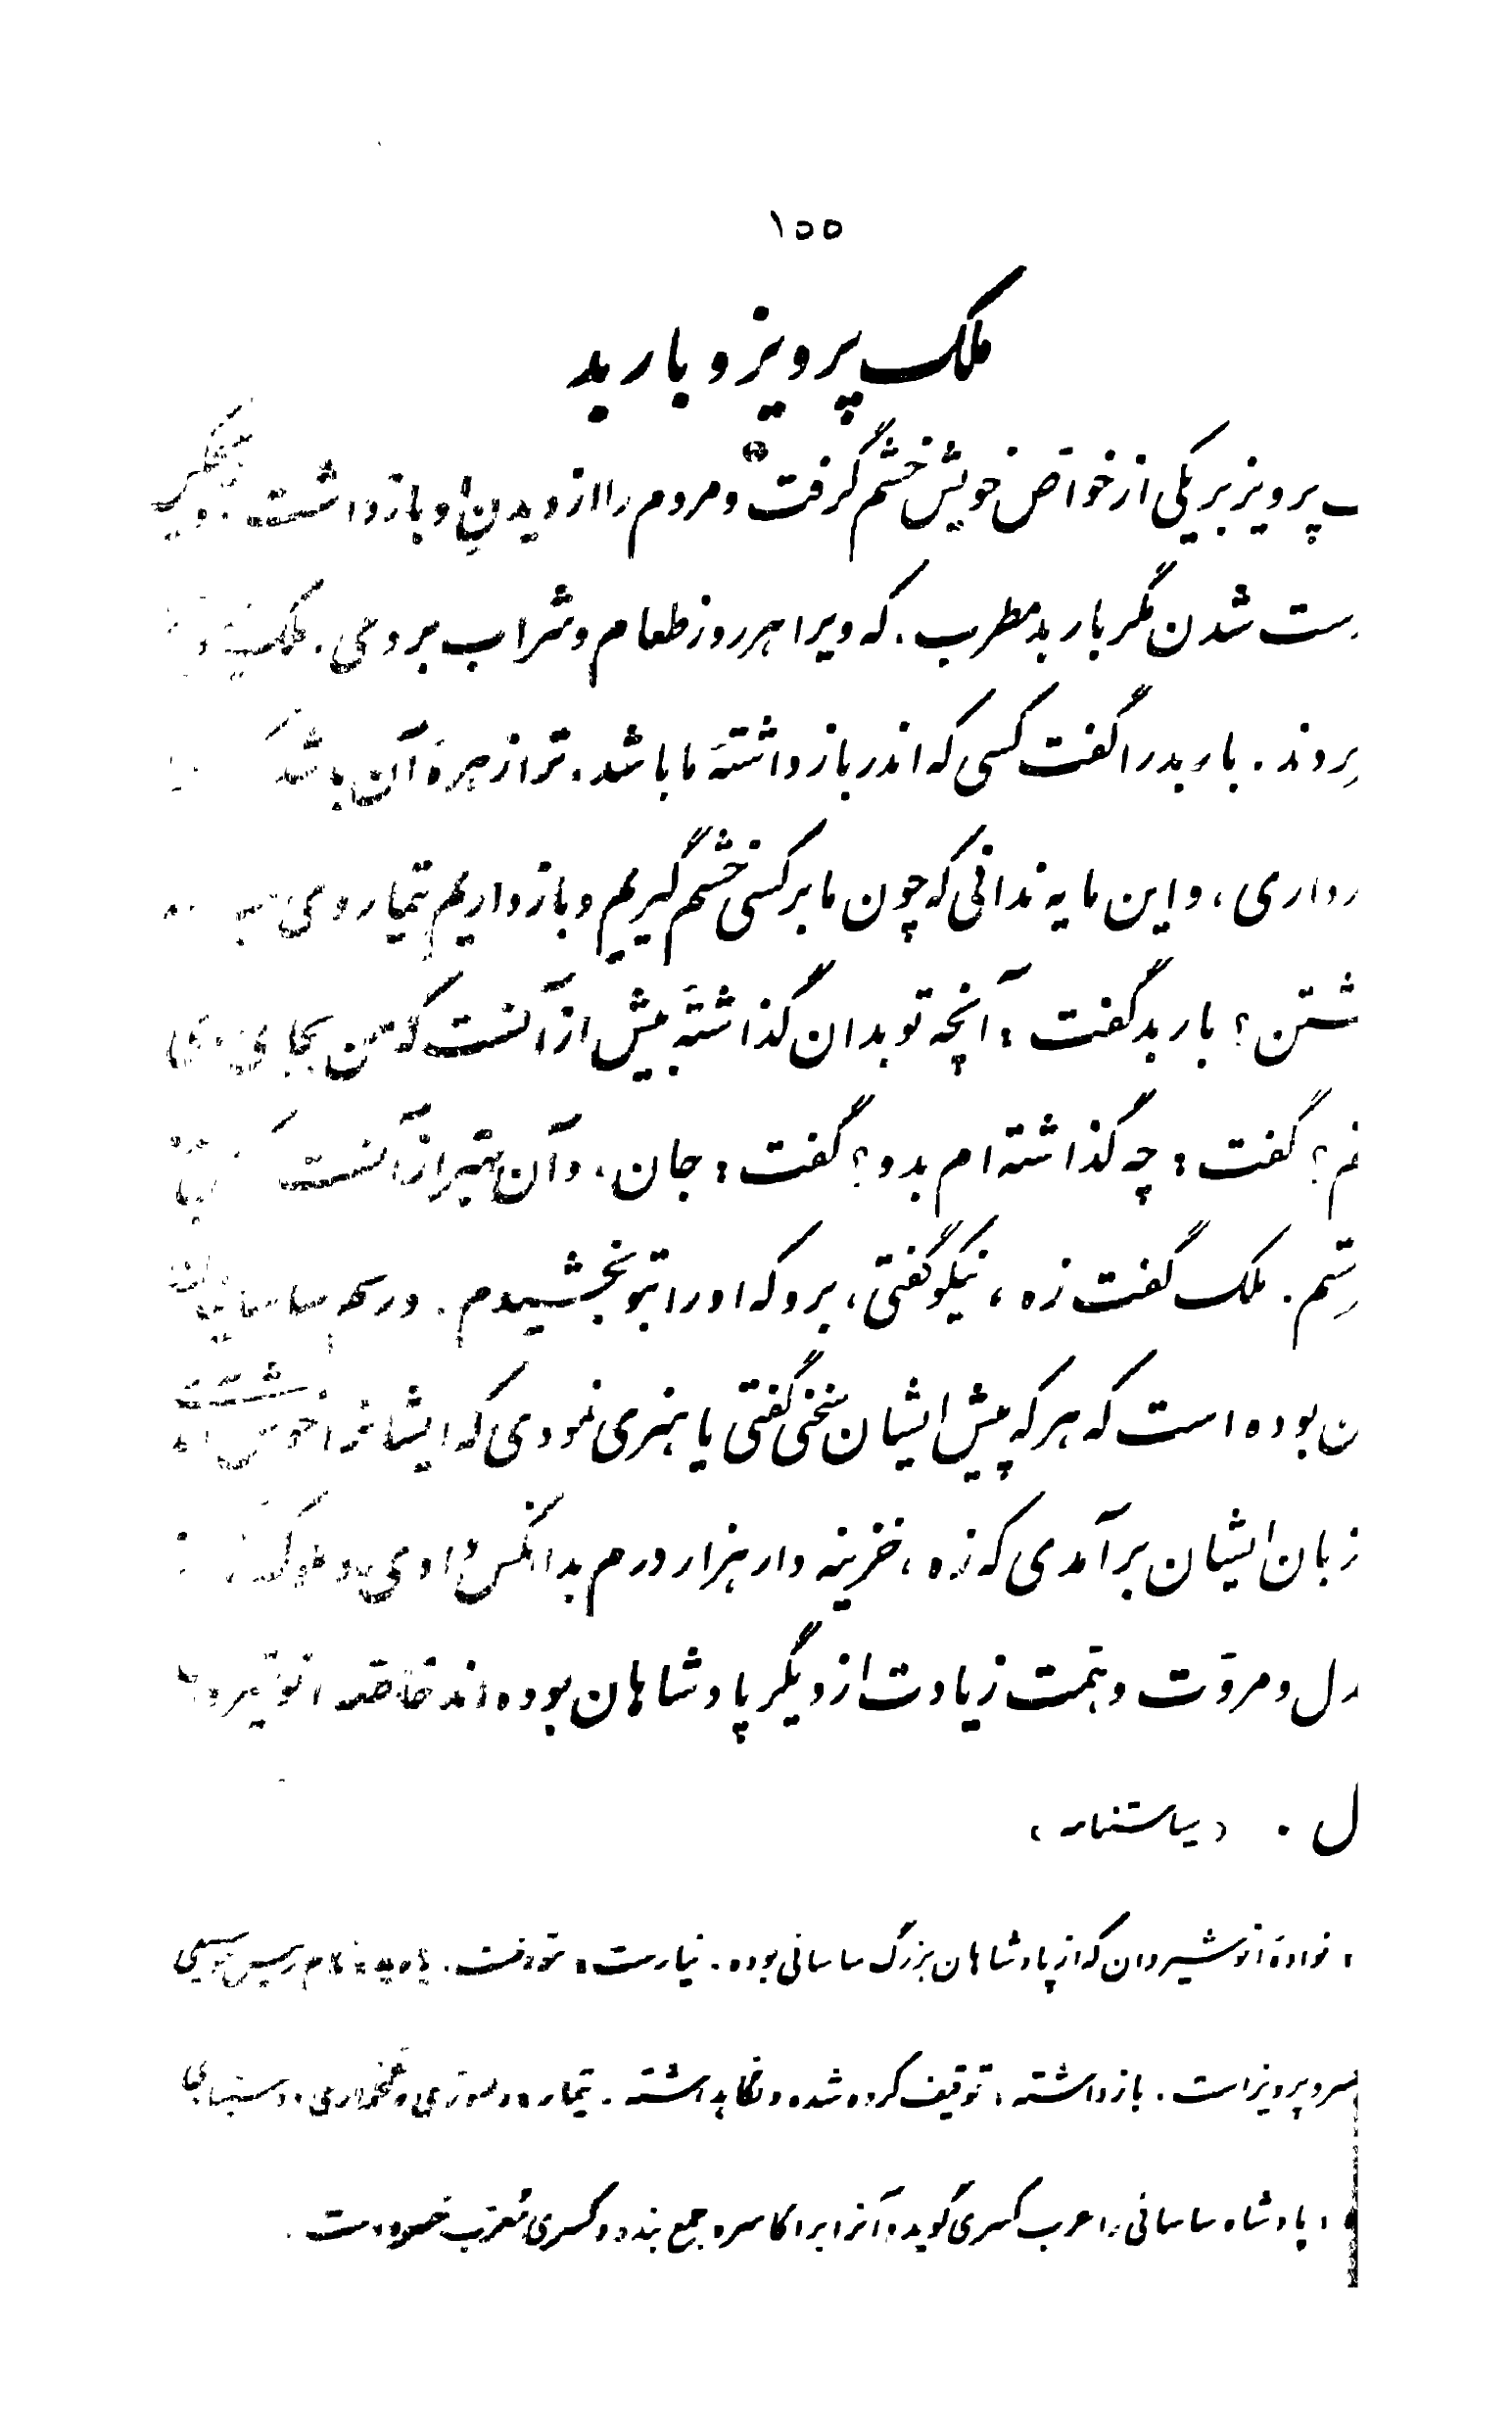 ۱۵۵
ملک پرویز و باربد
پرویز بر یکی از خواصّ خویش خشم گرفت و مردم را از دیدنِ او بازداشت.
شدن مگر باربد مطرب. که ویرا هر روز طعام و شراب بردی.
بردند. باربد را گفت کسی که اندر بازداشتهٔ ما باشد. ترا زهرهٔ آن باشد
داری، و این مایه ندانی که چون ما بر کسی خشم گیریم و بازداریم تیمار وی
باربد گفت: آنچه تو بدان گذاشتهٔ بیش از آنست که من بجای وی
گفت: چه گذاشته‌ام بدو؟ گفت: جان، و آن بهتر از آنست
ملک گفت زه، نیکو گفتی، برو که او را بتو بخشیدم. و رسم ساسانیان
بوده است که هر که پیش ایشان سخنی گفتی یا هنری نمودی که ایشانرا خوش
زبان ایشان برآمدی که زه، خزینه دار هزار درم بدانکس دادی، و ملوک
و مروّت و همّت زیادت از دیگر پادشاهان بوده‌اند خاصّه
ل. (سیاستنامه)
نوادهٔ انوشیروان که از پادشاهان بزرگ ساسانی بوده. نیارست:
پرویز است. بازداشته: توقیف کرده شده و نگاهداشته. تیمار: دلسوزی و غمخواری.
پادشاه ساسانی را عرب کسری گوید و آنرا بر اکاسره جمع بندد و کسری معرّب خسرو است.